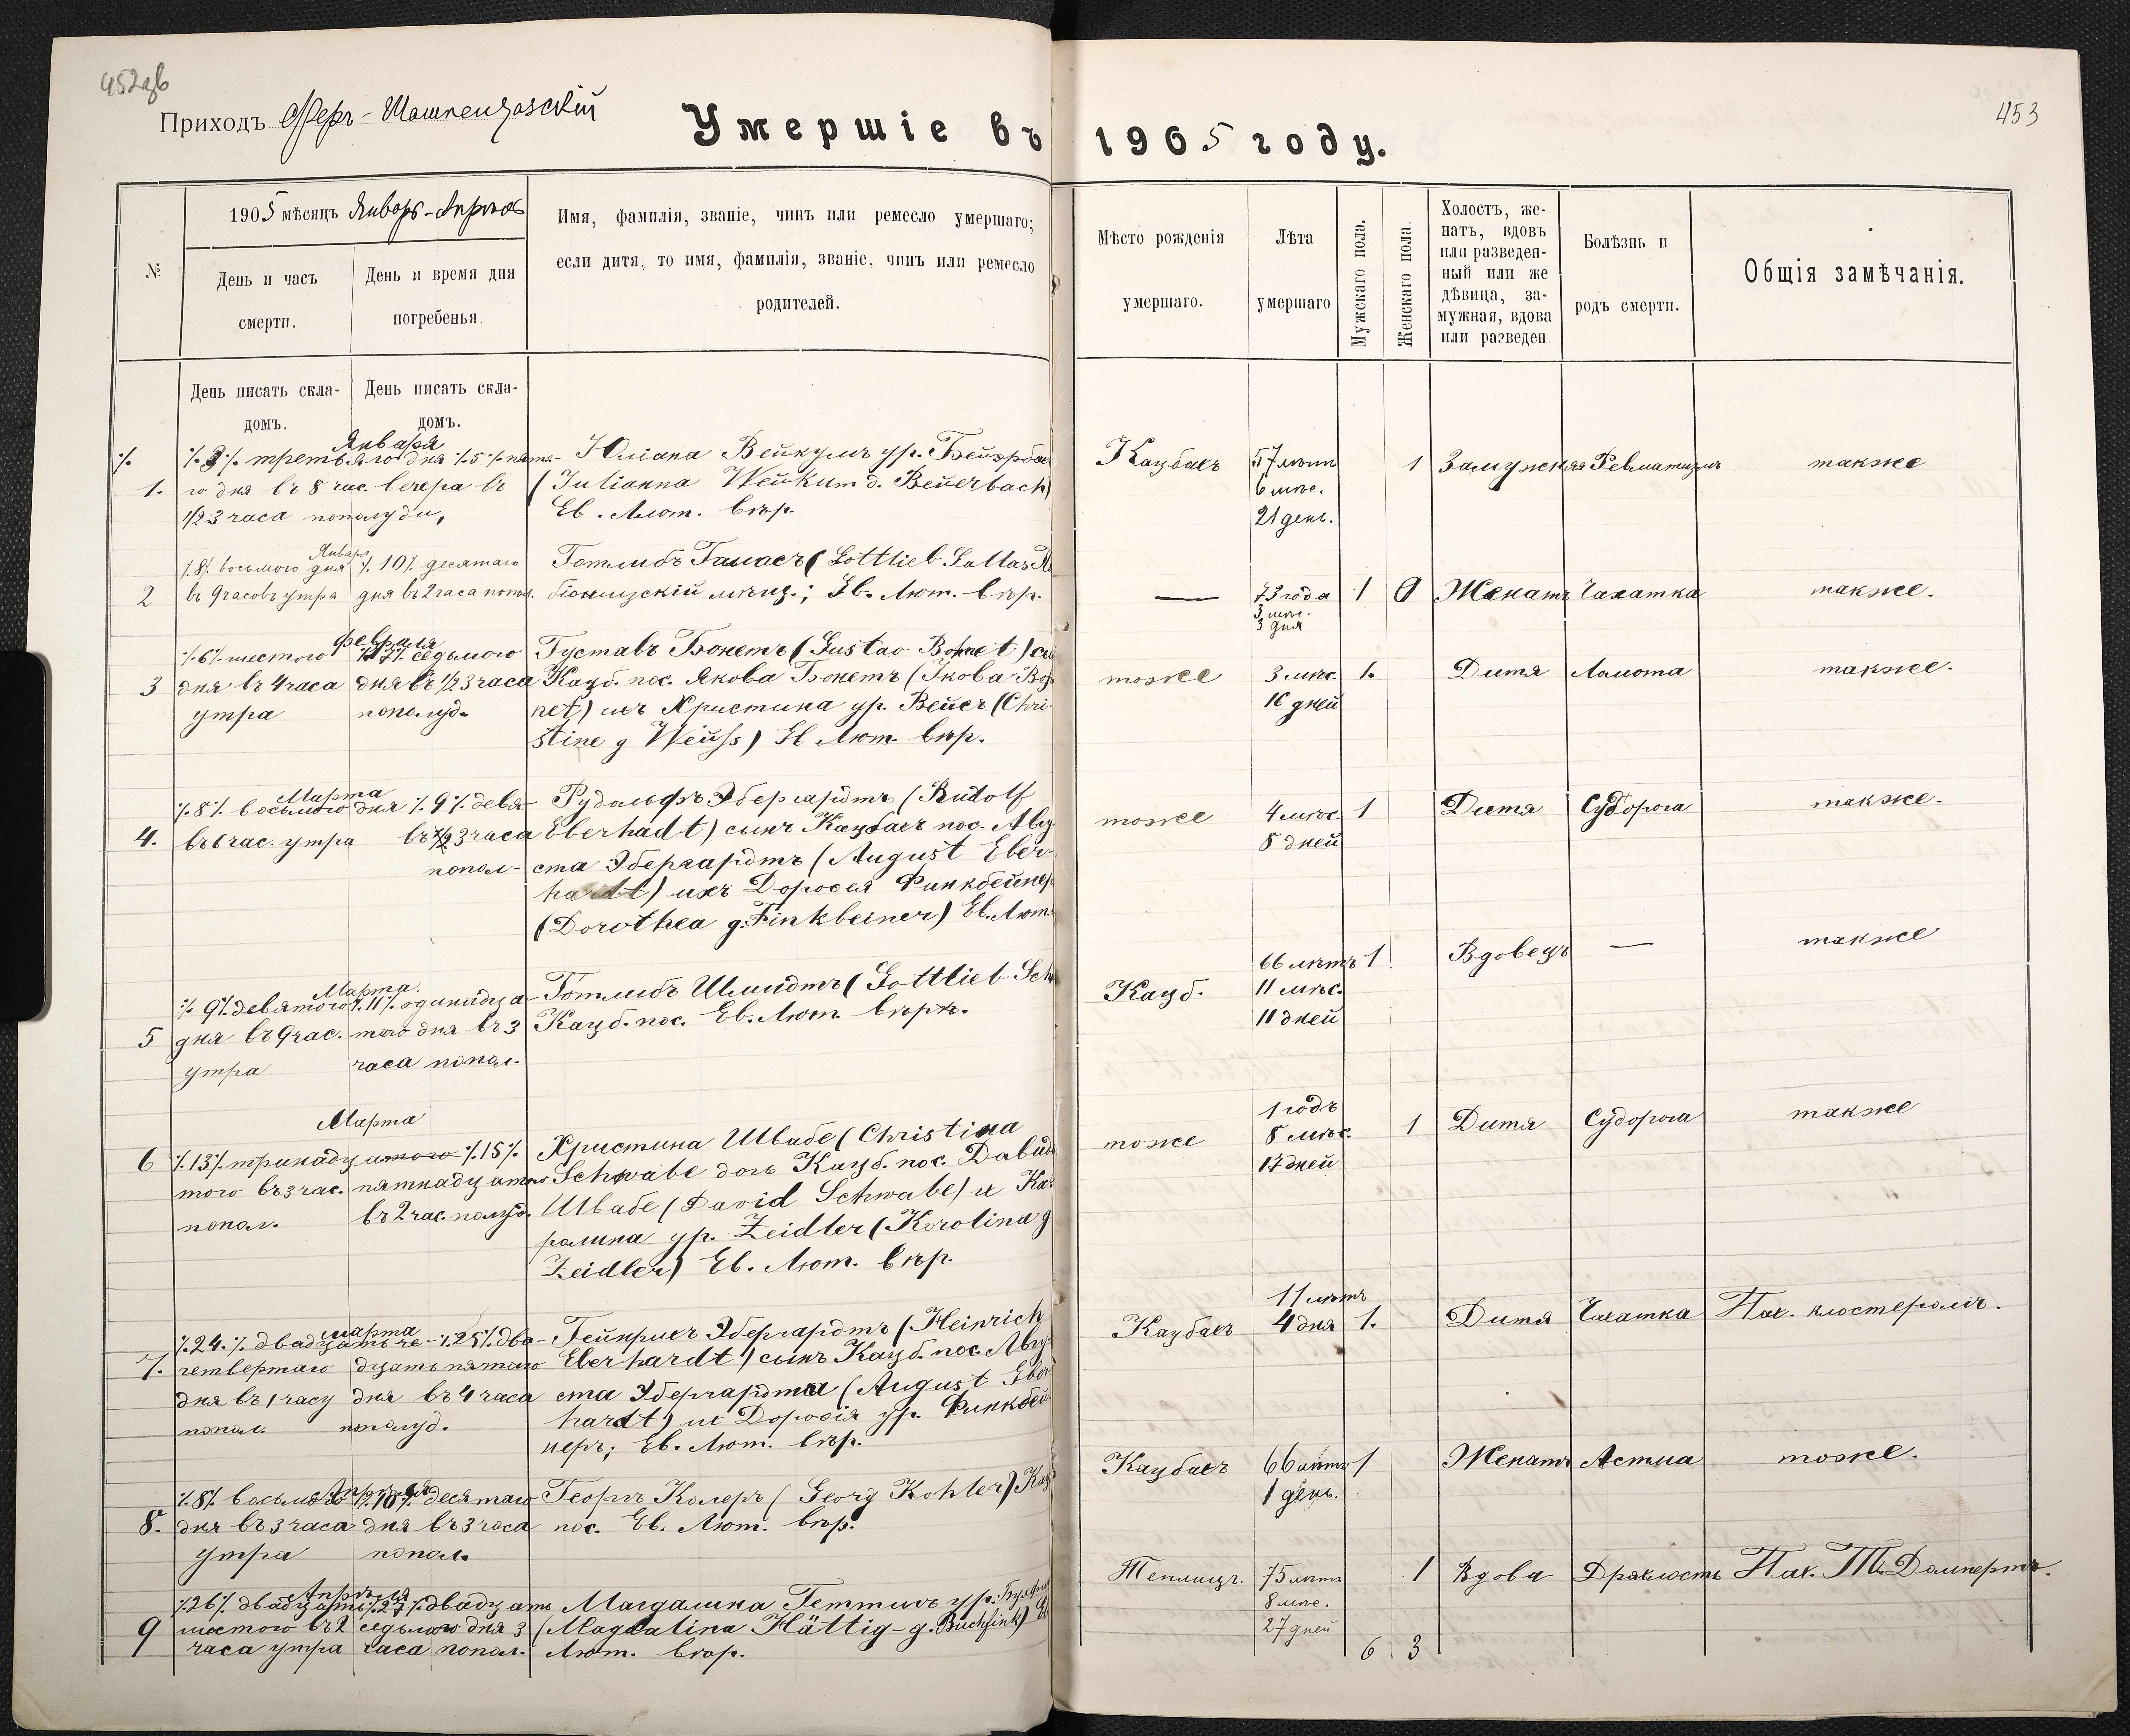 452об
453
Приходъ Феръ-Шампенуазскій
Умершіе въ 1905 году.
№
1905 мѣсяцъ Январь-Апрѣль
День и часъ смерти.
День и время дня погребенья.
Имя, фамилія, званіе, чинъ или ремесло умершаго;
если дитя, то имя, фамилія, званіе, чинъ или ремесло
родителей.
Мѣсто рожденія
умершаго.
Лѣта
умершаго
Мужскаго пола.
Женскаго пола.
Холостъ, же-
натъ, вдовъ
или разведен-
ный или же
дѣвица, за-
мужная, вдова
или разведен.
Болѣзнь и
родъ смерти.
Общія замѣчанія.
День писать скла-
домъ.
День писать скла-
домъ.
Января
1. %3% третьяго дня %5% пята-
го дня въ 8 час. вечера въ
1/2 3 часа пополуди,
Юліана Вейкумъ ур. Бейэрба
(Julianna Weÿkum d. Beÿerbach)
Ев. Лют. вѣр.
Кацбахъ
57 лѣтъ
6 мѣс.
21 день.
1
Замужняя
Ревматизмъ
также
Январ
2
%8% восьмого дня %10% десятаго
въ 9 часовъ утра дня въ 2 часа попол.
Готлибъ Галласъ (Gottlieb Gallas
мѣщ.; Ев. Лют. вѣр.
—
73 года
3 мѣс.
3 дня
1 0 Женатъ Чахатка также.
Февраля
3
%6% шестого %7% седьмого
дня въ 4 часа дня въ 1/2 3 часа
утра пополуд.
Густавъ Бонетъ (Gustav Bohnet)
Кацб. пос. Якова Бонетъ (Jкова Boh
net) ихъ Христина ур. Вейсъ (Chri-
stine g Weÿss) Ев Лют. вѣр.
тоже
3 мѣс.
16 дней
1. Дитя Ломота также.
Марта
4.
%8% восьмого дня %9% девя-
въ 6 час. утра въ 1/2 3 часа
попол-
Рудольфъ Эбергардтъ (Rudolf
Eberhadt) сынъ Кацбахъ пос. Авгу
ста Эбергардтъ (August Eber-
hardt) ихъ Доросея Финкбейнер
(Dorothea g. Finkbeiner) Ев. Лют.
тоже
4 мѣс.
8 дней
1 Дитя Судорога также.
Марта.
5
%9% девятого %11% одинадца-
дня въ 9 час. того дня въ 3
утра часа попол.
Готлибъ Шмидтъ (Gottlieb Sch
Кацб. пос. Ев. Лют вѣр.
Кацб.
66 лѣтъ
11 мѣс.
11 дней
1 Вдовецъ — также
Марта
6
%13% тринадцатого %15%
того въ 3 час. пятнадцатаго
попол. въ 2 час. полуд.
Христина Швабе (Christina
Schwabe дочь Кацб. пос. Давид
Швабе (David Schwabe) и Ка-
ролина ур. Zeidler (Karolina g
Zeidler) Ев. Лют. вѣр.
тоже
1 годъ
8 мѣс.
17 дней
1 Дитя Судорога также
марта
7.
%24.% двадцать че- %25% два-
четвертаго дцать пятаго
дня въ 1 часу дня въ 4 часа
попол. пополуд.
Гейнрихъ Эбергардтъ (Heinrich
Eberhardt) сынъ Кацб. пос. Авгу-
ста Эбергардта (August Eber
hardt) и Доросія ур. Финкбей
неръ; Ев. Лют. вѣр.
Кацбахъ
11 лѣтъ
4 дня
1. Дитя Чахатка Пах. клостераль.
Апрѣля
8.
%8% восьмого %10% десятаго
дня въ 3 часа дня въ 3 часа
утра попол.
Георгъ Колеръ (Georg Kohler) Кац
пос. Ев. Лют. вѣр.
Кацбахъ
66 лѣтъ
1 день.
1 Женатъ Астма тоже.
Апрѣля
9
%26% двадцать %27% двадцать
шестого въ 2 седьмого дня 3
часа утра часа попол.
Магдалина Геттигъ ур.
(Magdalina Hättig - g. Buchfink) Ев
Лют. вѣр.
Теплицъ.
75 лѣтъ
8 мѣс.
27 дней
1 Вдова Дряхлость Пах. Т. Домпертъ.
6 3